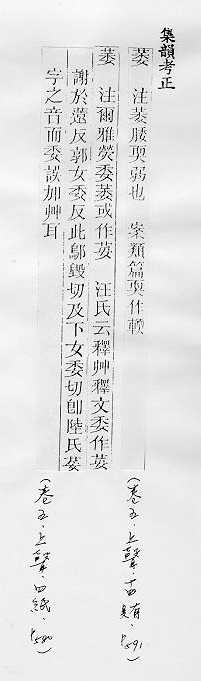 集韻考正
萎 注萎腇耎弱也 案類篇耎作輭
(卷五.上聲.十四賄.p591)
萎 注爾雅熒委萎或作荽 汪氏云釋艸釋文委作荽
謝於薳反郭女委反此鄔毀切及下女委切卽陸氏荽
字之音而委誤加艸耳
(卷五.上聲.四紙.p580)